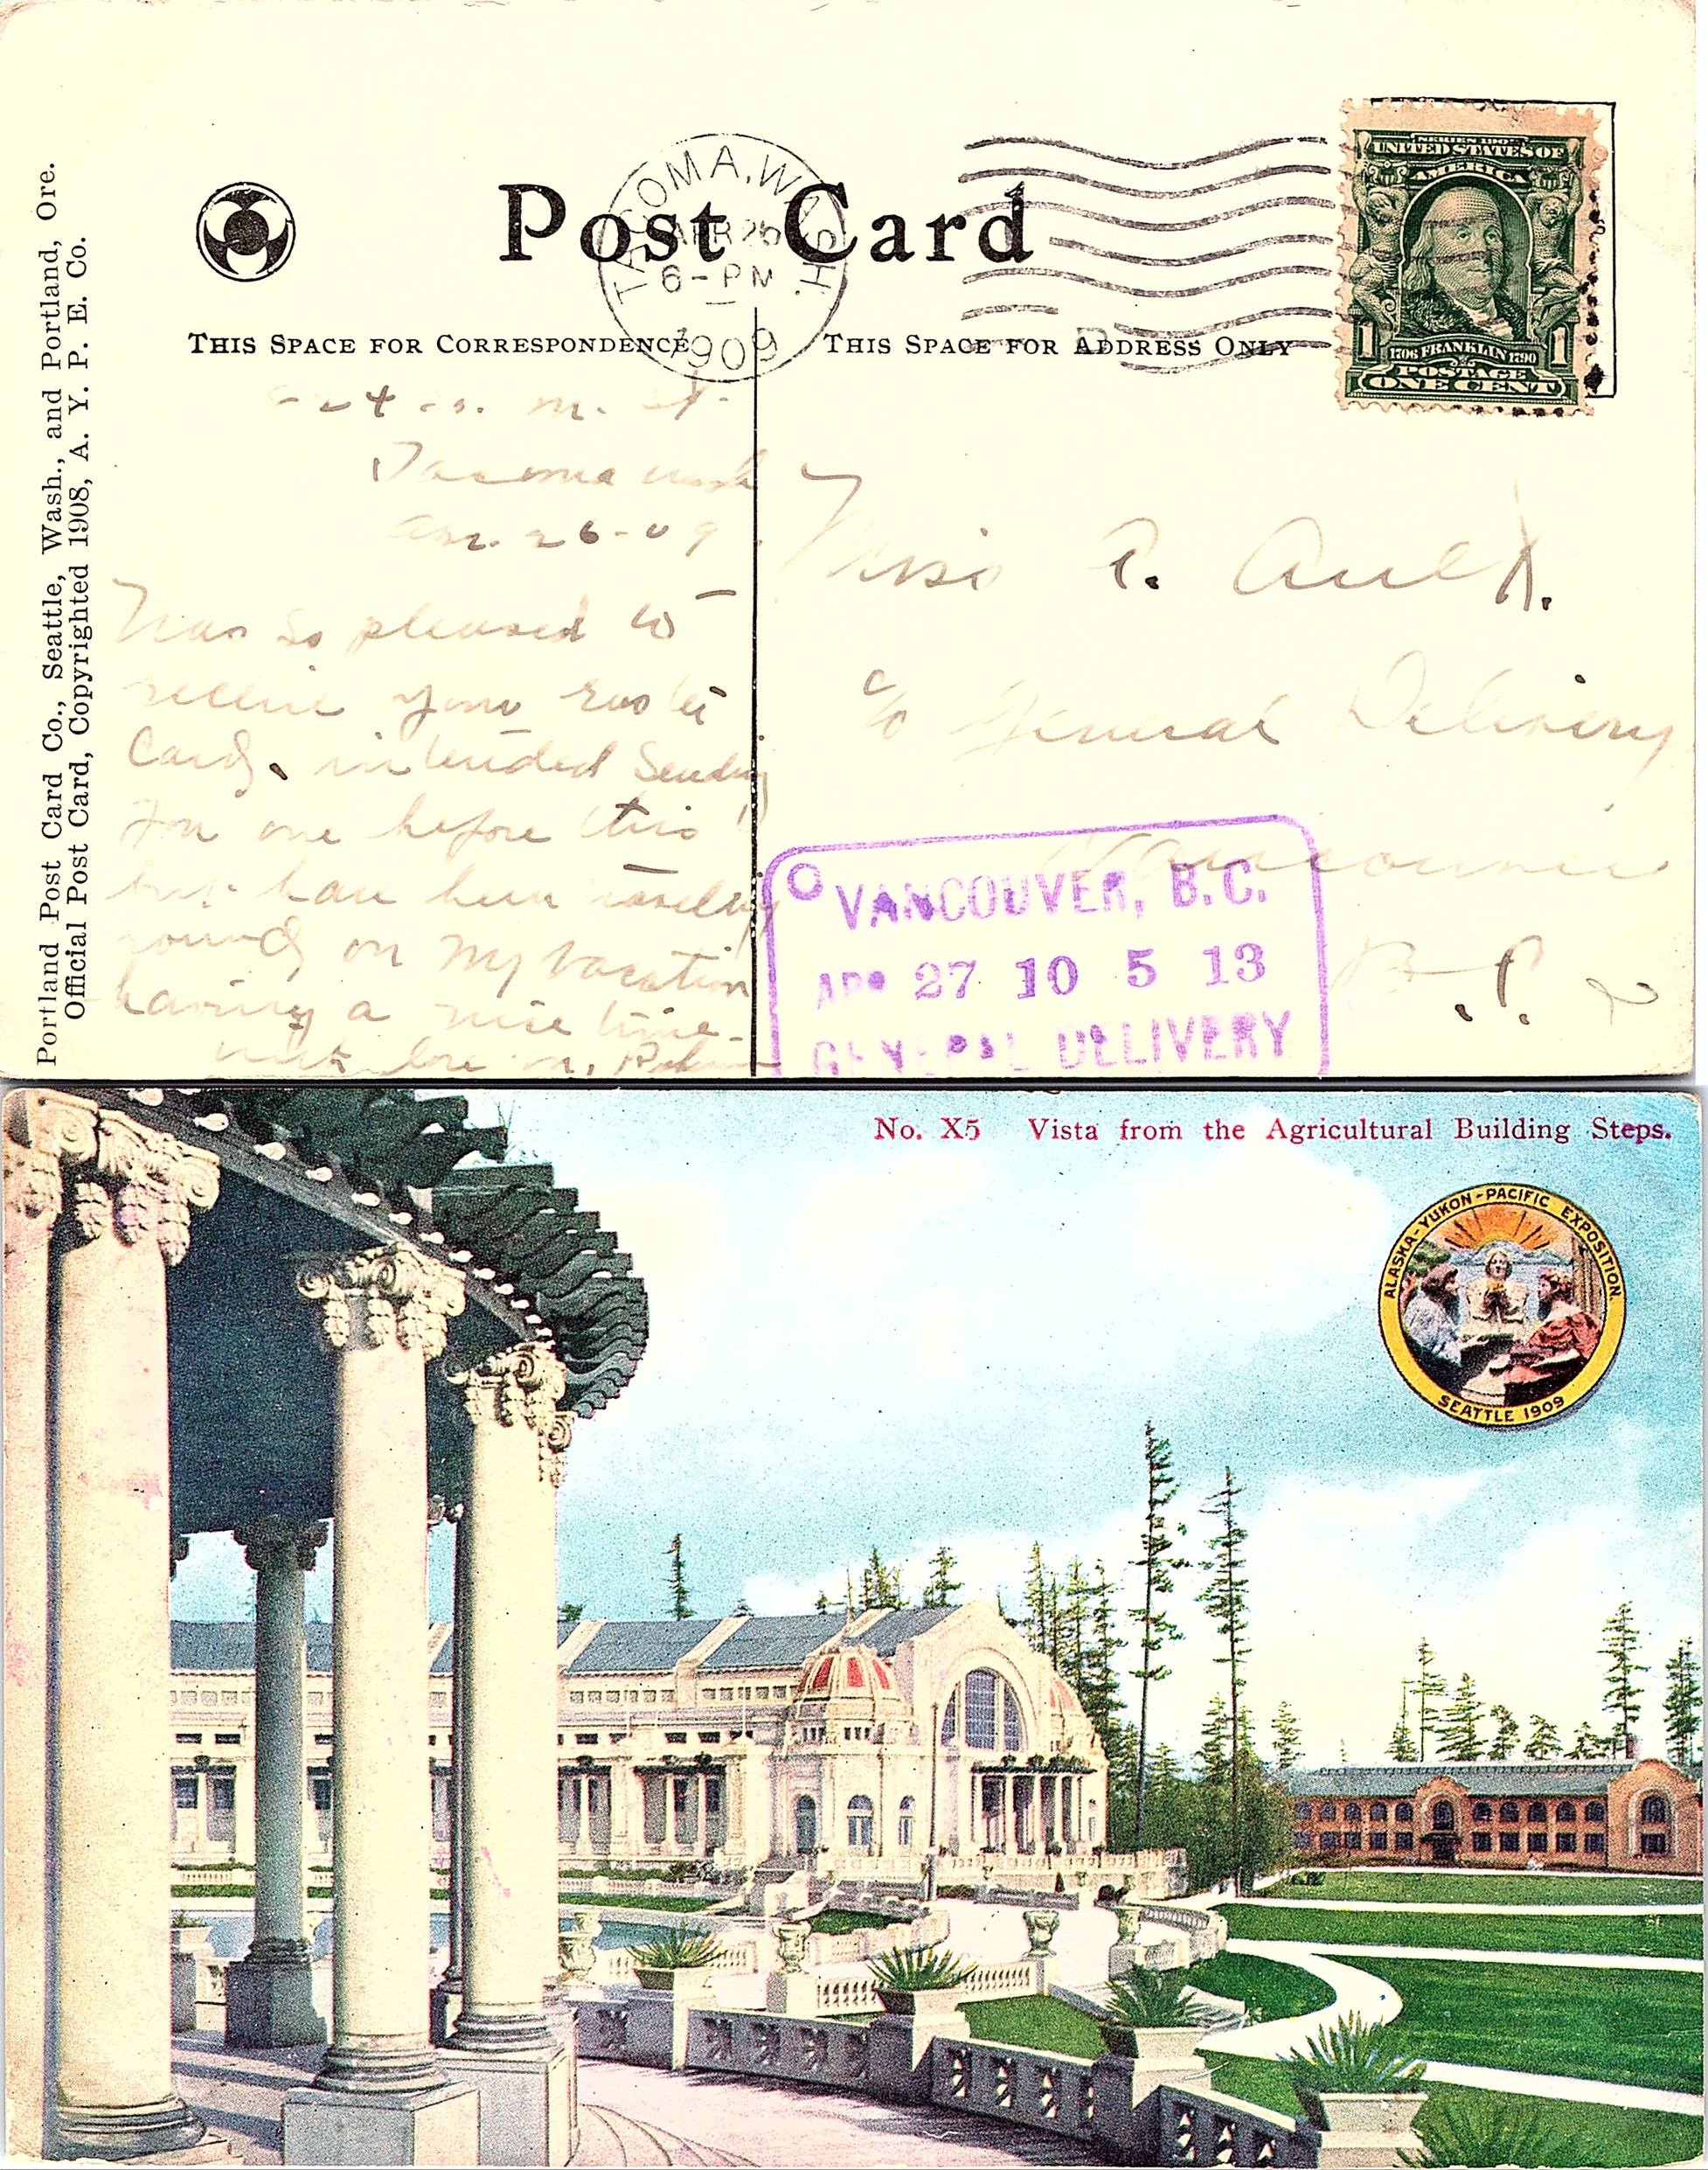 Portland Post Card Co., Seattle, Wash., and Portland, Ore.
Official Post Card, Copyrighted 1908, A. Y. P. E. Co.
Post Card
TACOMA, WASH.
APR 26
6-PM
1909
SERIES 1902
UNITED STATES OF
AMERICA
1706 FRANKLIN 1790
1 1
POSTAGE
ONE CENT
THIS SPACE FOR CORRESPONDENCE
THIS SPACE FOR ADDRESS ONLY
Tacoma Wash
Apr. 26-09
Was so pleased to
receive your Easter
Card. intended Sending
you one before this
but have been traveling
round on my vacation
having a nice time
with love
Miss A. Auld.
c/o General Delivery
Vancouver
B.C.
VANCOUVER, B.C.
APR 27 10 5 13
GENERAL DELIVERY
No. X5 Vista from the Agricultural Building Steps.
ALASKA-YUKON-PACIFIC EXPOSITION.
SEATTLE 1909